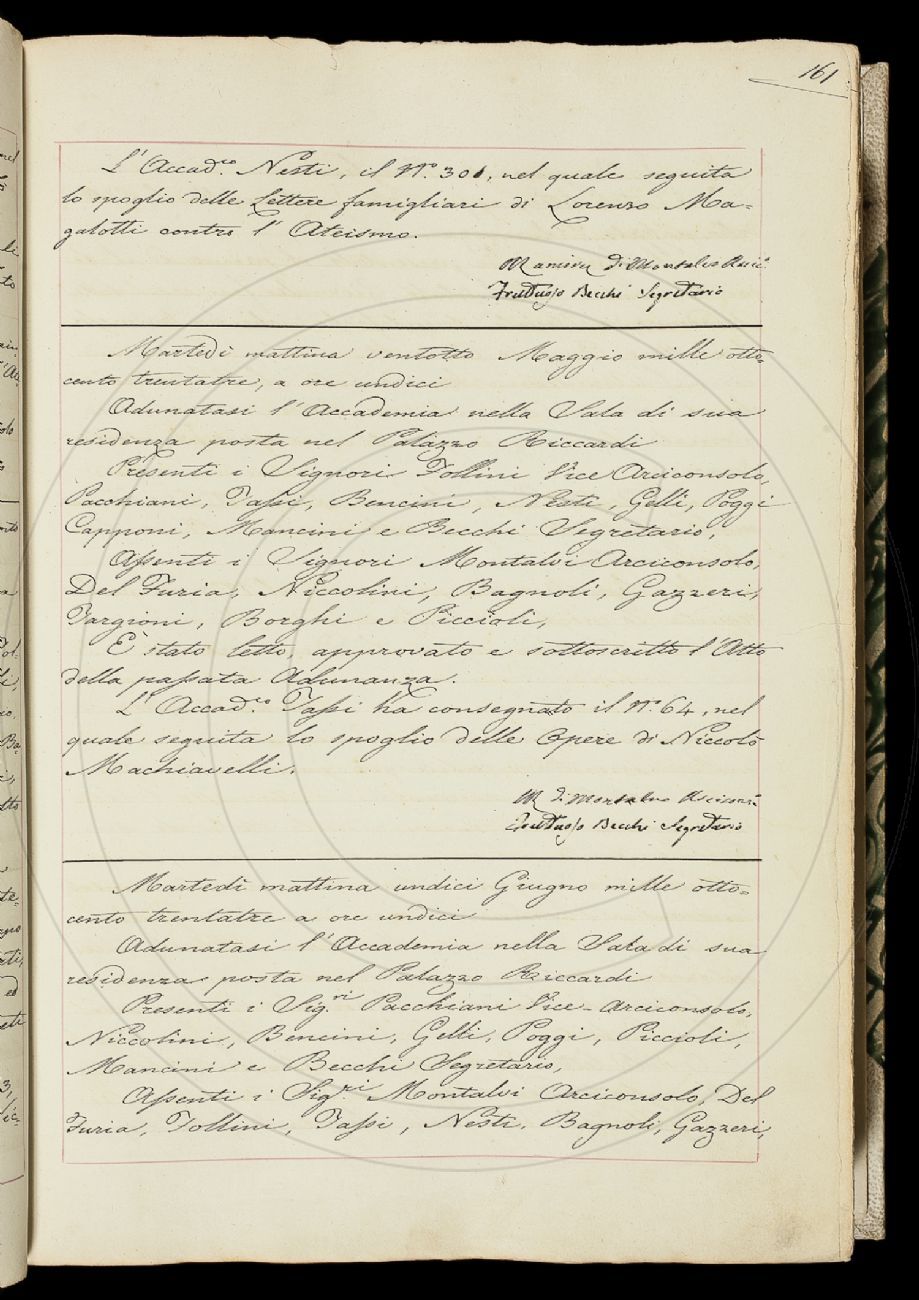 161
L'Accad.co Nesti, il N.o 301, nel quale seguita
lo spoglio delle Lettere famigliari di Lorenzo Ma=
galotti contro l'Ateismo.
di Montalvo
Fruttuoso Becchi Segretario
Martedì mattina ventotto Maggio mille otto=
cento trentatre, a ore undici
Adunatasi l'Accademia nella Sala di sua
residenza posta nel Palazzo Riccardi
Presenti i Signori Tollini Vice Arciconsolo,
Pacchiani, Tassi, Bencini, Nesti, Gelli, Poggi
Capponi, Mancini e Becchi Segretario,
Assenti i Signori Montalvi Arciconsolo,
Del Furia, Niccolini, Bagnoli, Gazzeri,
Targioni, Borghi e Piccioli,
È stato letto, approvato e sottoscritto l'Atto
della passata Adunanza.
L'Accad.co Tassi ha consegnato il N.o 64, nel
quale seguita lo spoglio delle Opere di Niccolò
Machiavelli.
di Montalvo
Fruttuoso Becchi Segretario
Martedì mattina undici Giugno mille otto=
cento trentatre a ore undici
Adunatasi l'Accademia nella Sala di sua
residenza posta nel Palazzo Riccardi
Presenti i Sig.ri Pacchiani Vice-Arciconsolo,
Niccolini, Bencini, Gelli, Poggi, Piccioli,
Mancini e Becchi Segretario,
Assenti i Sig.ri Montalvi Arciconsolo, Del
Furia, Tollini, Tassi, Nesti, Bagnoli, Gazzeri,